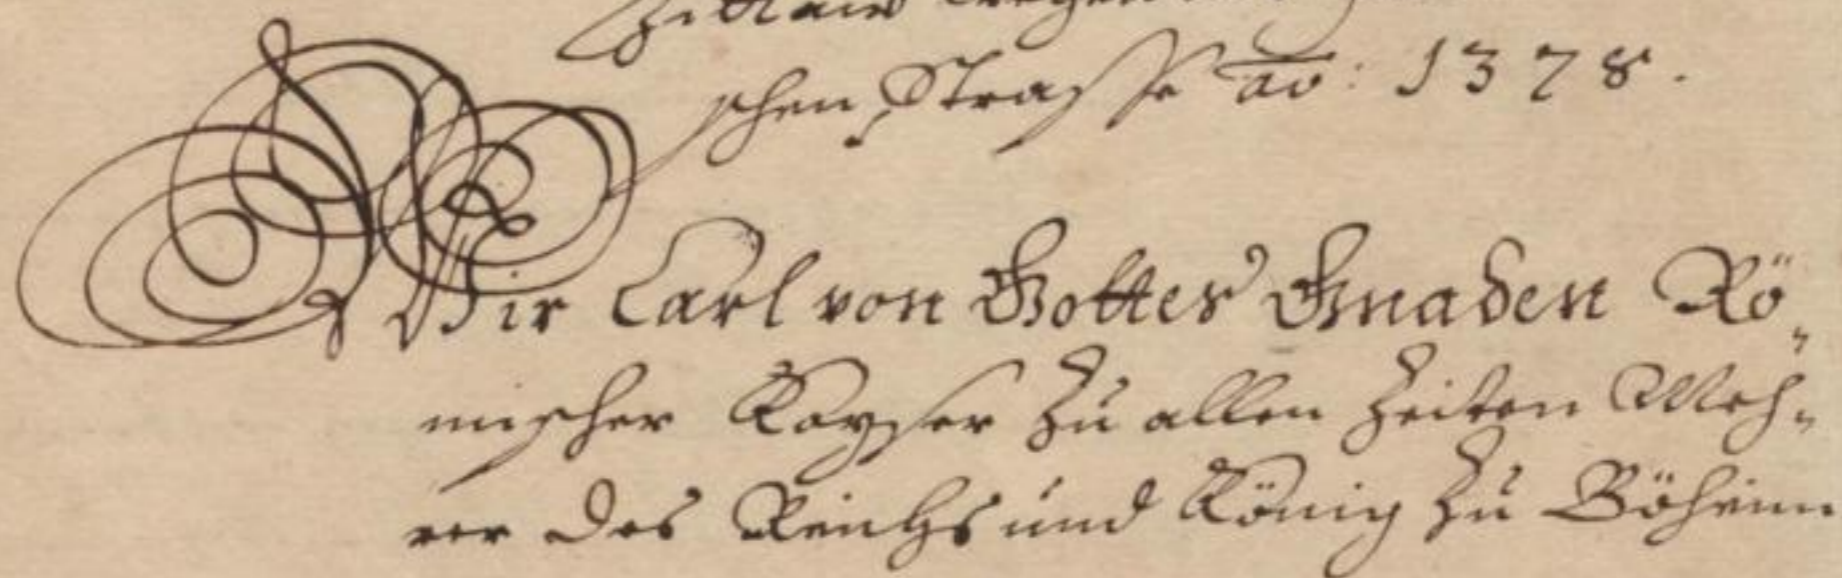 Zittaw
schen Strasse ao: 1378.
Wir Carl von Gottes Gnaden Rö-
mischer Kayser zu allen Zeiten Meh-
rer des Reichs und König zu Böheim